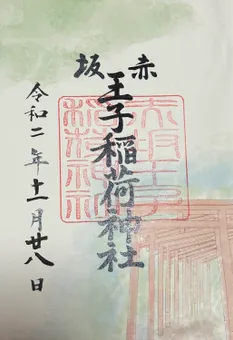 赤坂
王子稲荷神社
令和二年十一月廿八日